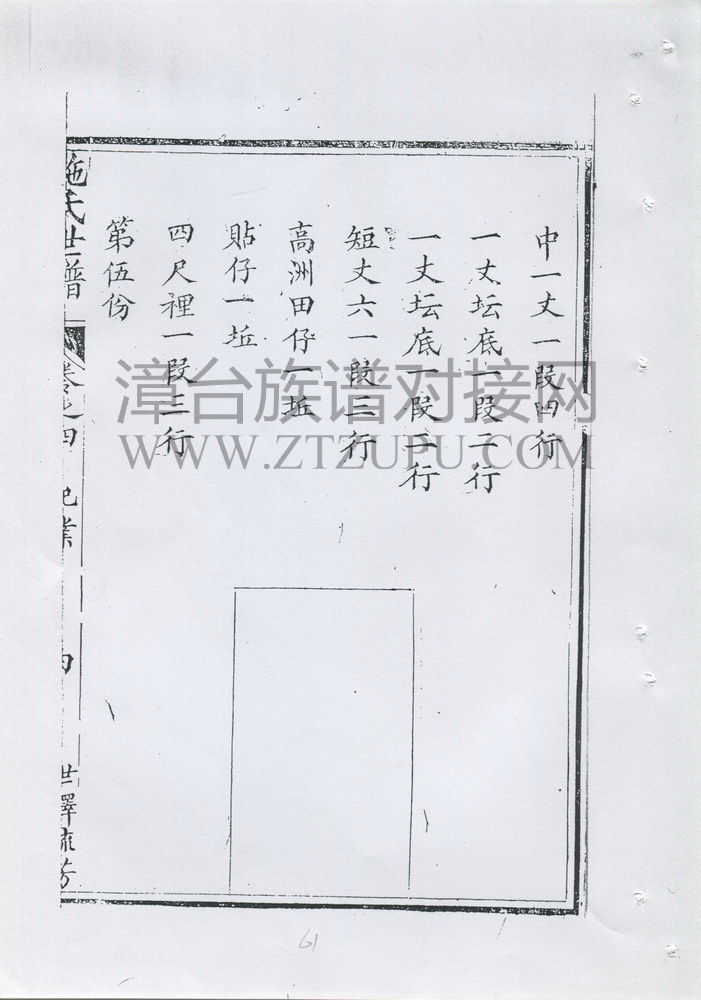 中一丈一段四行
一丈坛底一段二行
一丈坛底一段二行
短丈六一段三行
高洲田仔一坵
貼仔一坵
四尺裡一段三行
第伍份
施氏世譜
卷之四
祀業
四
世澤流芳
漳台族谱对接网
WWW.ZTZUPU.COM
61